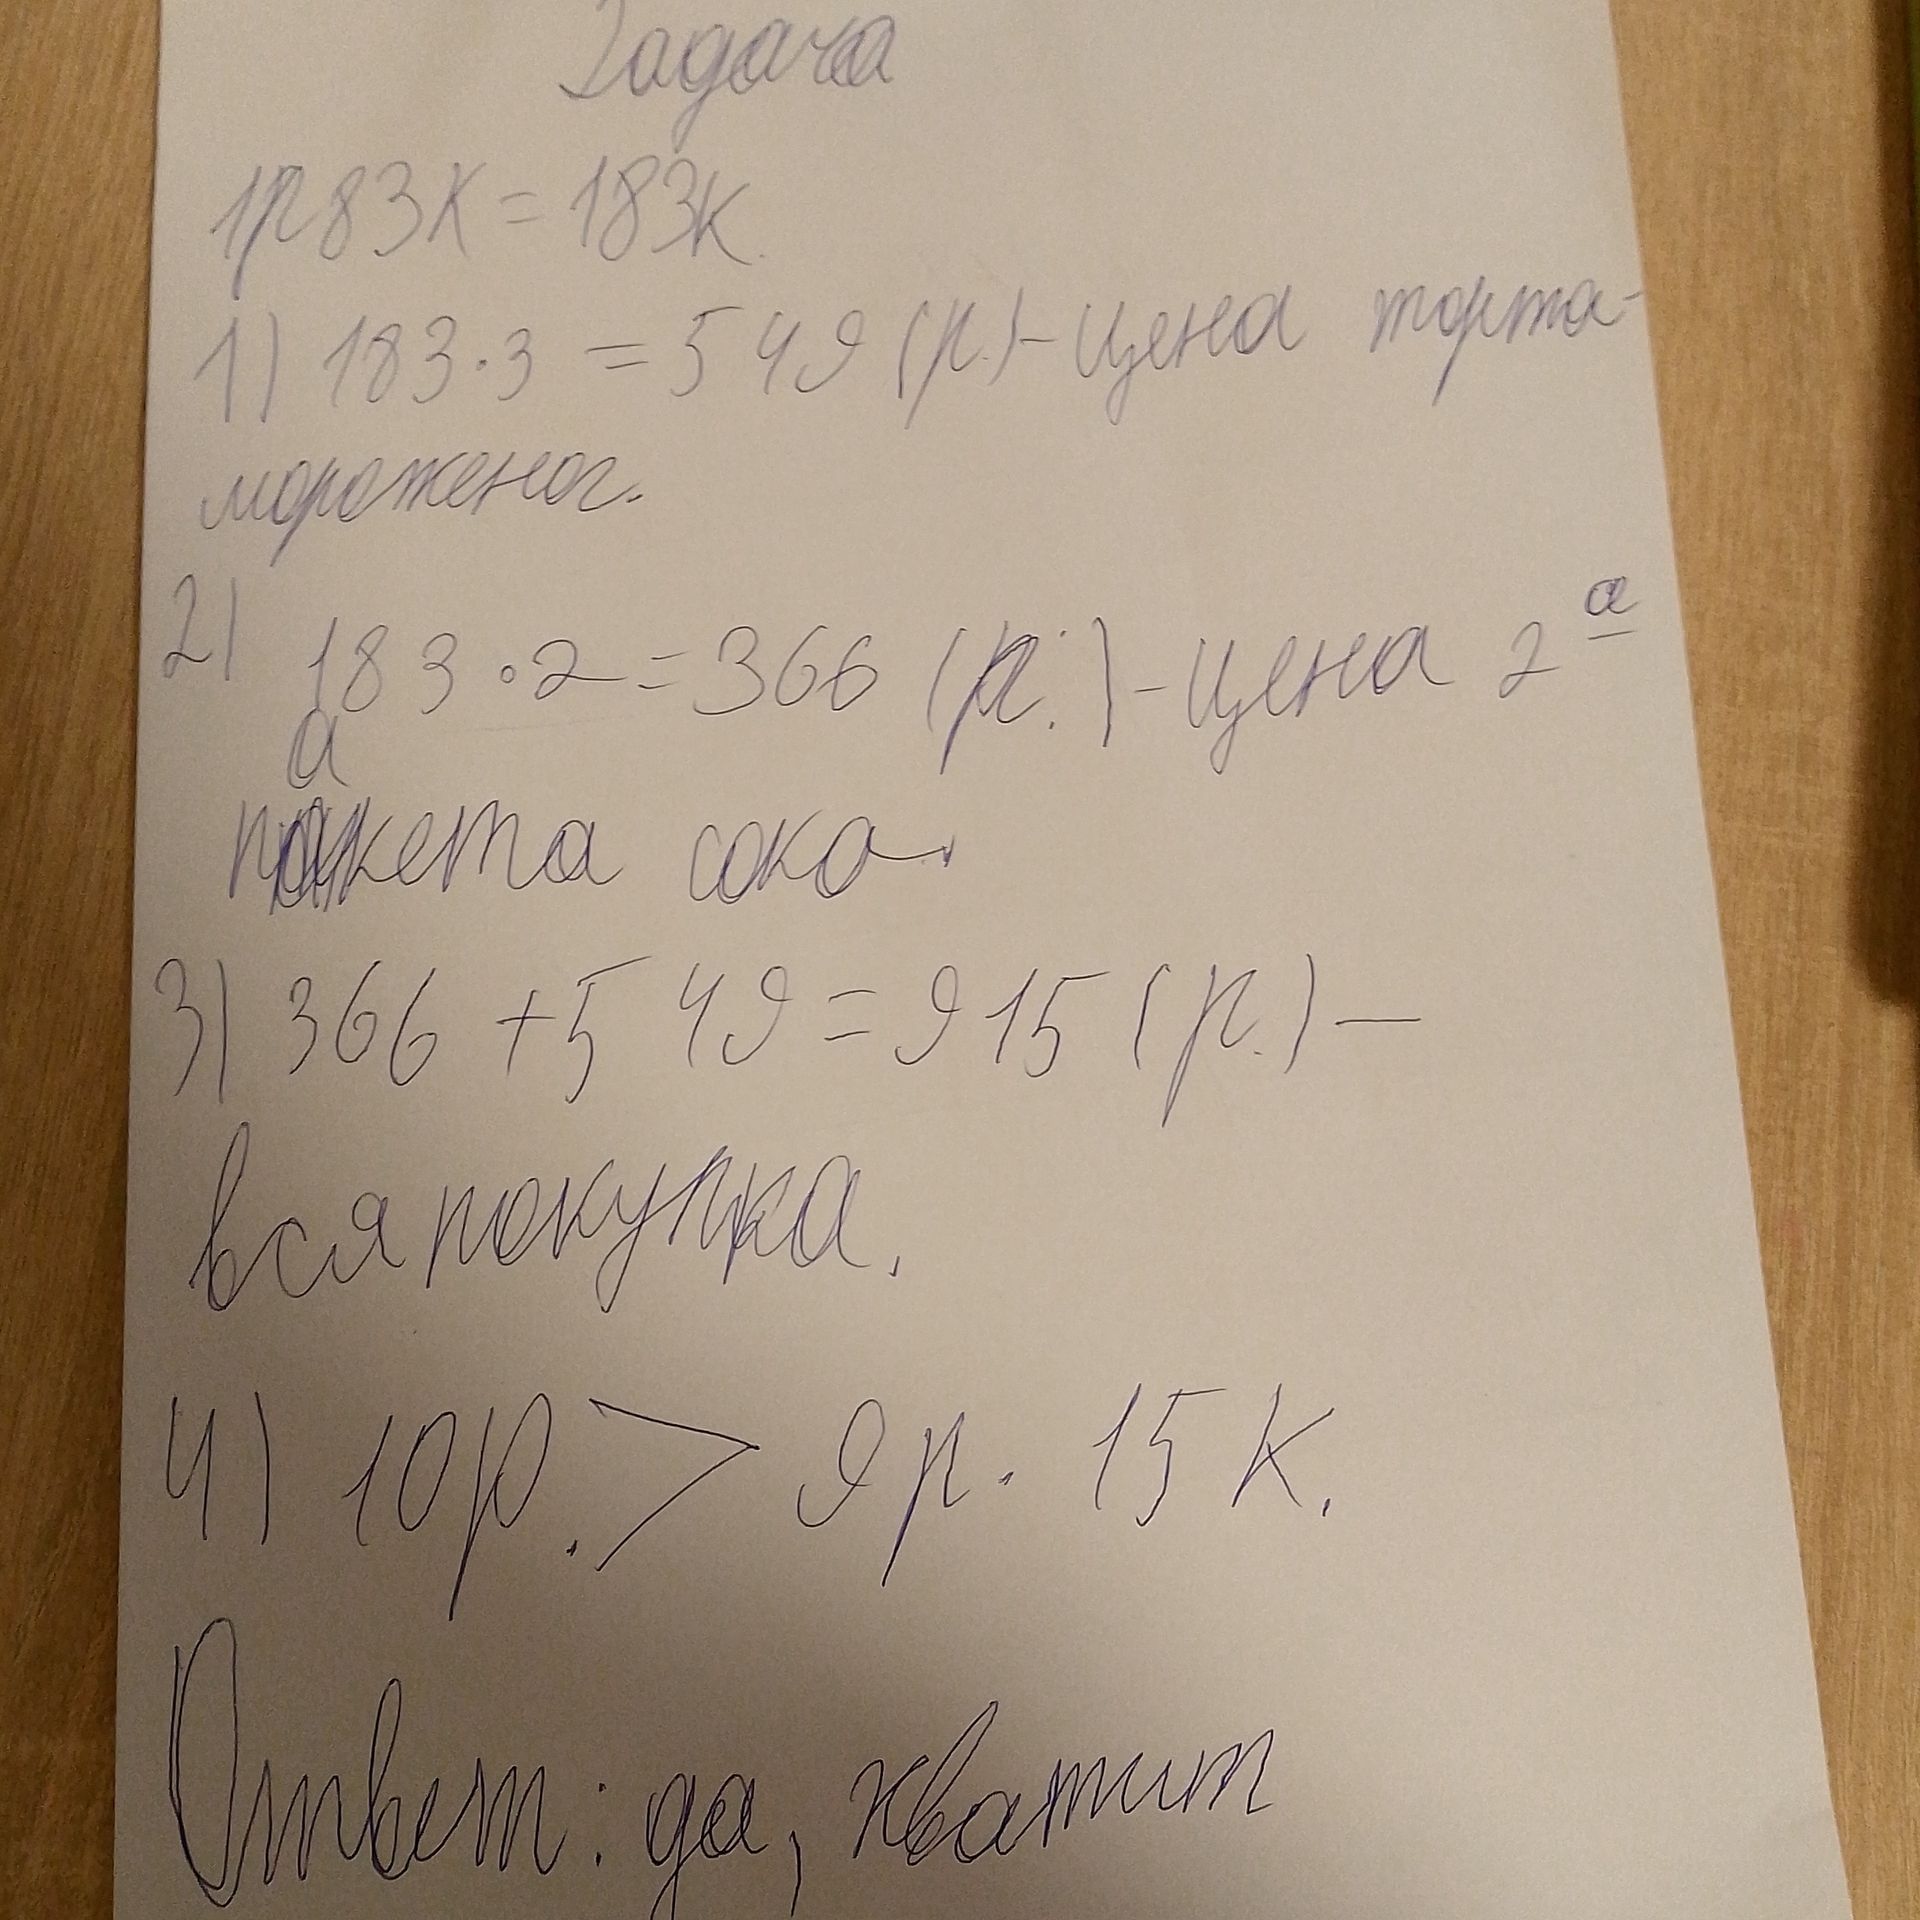 Задача
1р83к=183к.
1) 183·3=549(р.)-цена торта-
мороженог.
2) 183·2=366(р.)-цена 2а
а
пакета сока.
3) 366+549=915(р.)—
вся покупка.
4) 10р.>9р.15к.
Ответ: да, хватит